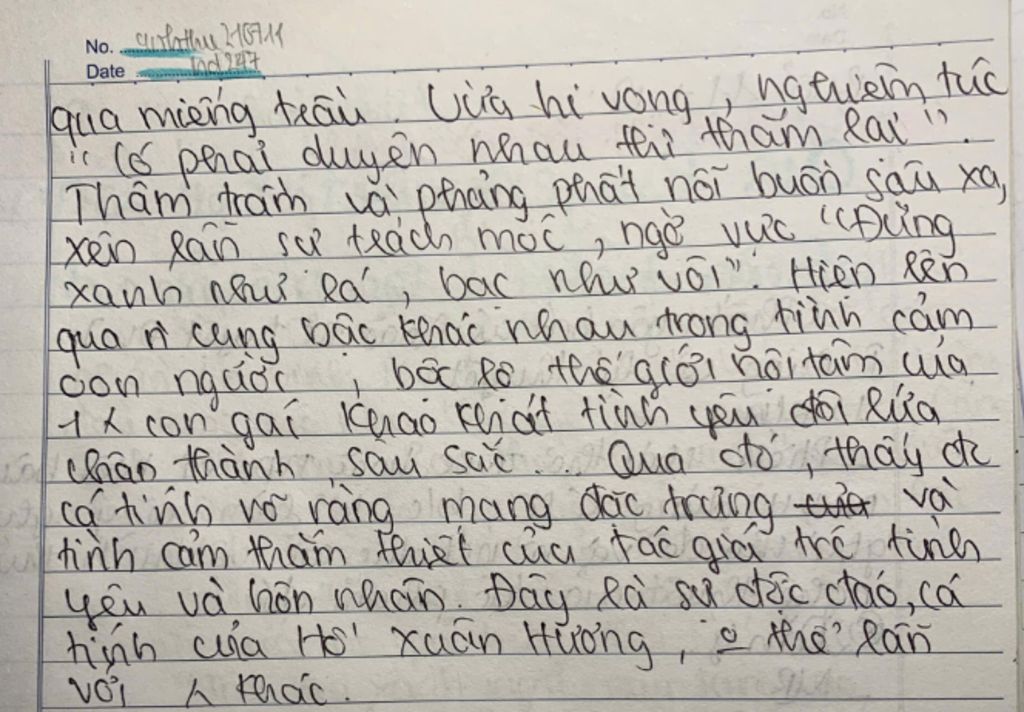 No.
Date
qua miếng trầu. Vừa hi vọng, nghiêm túc
"Có phải duyên nhau thì thắm lại".
Thâm trầm và phảng phất nỗi buồn sâu xa,
xen lẫn sự trách móc, ngờ vực "Đừng
xanh như lá, bạc như vôi". Hiện lên
qua n~ cung bậc khác nhau trong tình cảm
con người, bộc lộ thế giới nội tâm của
1 con gái khao khát tình yêu đôi lứa
chân thành, sâu sắc... Qua đó, thấy đc
cá tính rõ ràng mang đặc trưng và
tình cảm thắm thiết của tác giả trc tình
yêu và hôn nhân. Đây là sự độc đáo, cá
tính của Hồ Xuân Hương, thể lẫn
với khác.